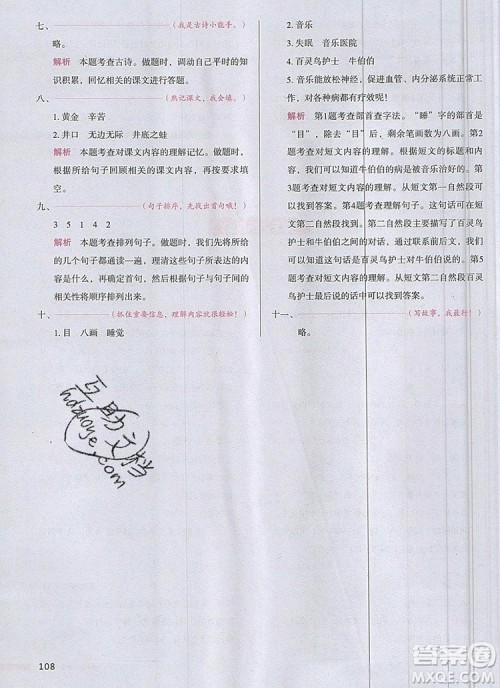 七、（我是古诗小能手。）
略。
解析 本题考查古诗。做题时，调动自己平时的知
识积累，回忆相关的课文进行答题。
八、（熟记课文，我会填。）
1. 黄金 辛苦
2. 井口 无边无际 井底之蛙
解析 本题考查对课文内容的理解记忆。根据
所给句子回忆相关课文，再按要求填空。
九、（句子排序，先找出首句哦！）
3 5 1 4 2
解析 本题考查排列句子。做题时，我们先将所给
的几个句子都通读一遍，理清这些句子所表达的内容
是什么，再确定首句，然后再根据这些句子的前后
相关性将顺序排列出来。
十、（抓住重要信息，理解内容就很轻松！）
1. 目 八画 睡觉
2. 音乐
3. 失眠 音乐医院
4. 百灵鸟护士 牛伯伯
5. 音乐能放松神经，促进血管、内分泌系统正常工
作，对各种疾病都有疗效呢！
解析 第1题考查部首查字法。“睡”字的部首是
“目”，除去“目”后，剩余笔画为八画。第2题考
查对短文内容的理解。根据短文的主要内容和短
文第二自然段，我们可以知道牛伯伯是被音乐治好的。
第3题考查对短文内容的理解。在短文第二自然段
可以找到答案。第4题考查理解句子。仔细阅读短
文第二自然段，我们可以知道第二自然段百灵鸟
护士和牛伯伯之间的对话。第5题考查对短文内容
的理解。仔细阅读短文，在短文第二自然段百灵鸟
护士最后说的话中可以找到答案。
十一、（写故事，我最行！）
略。
互助文档
hdzuoye.com
108
答案圈
MXQE.COM